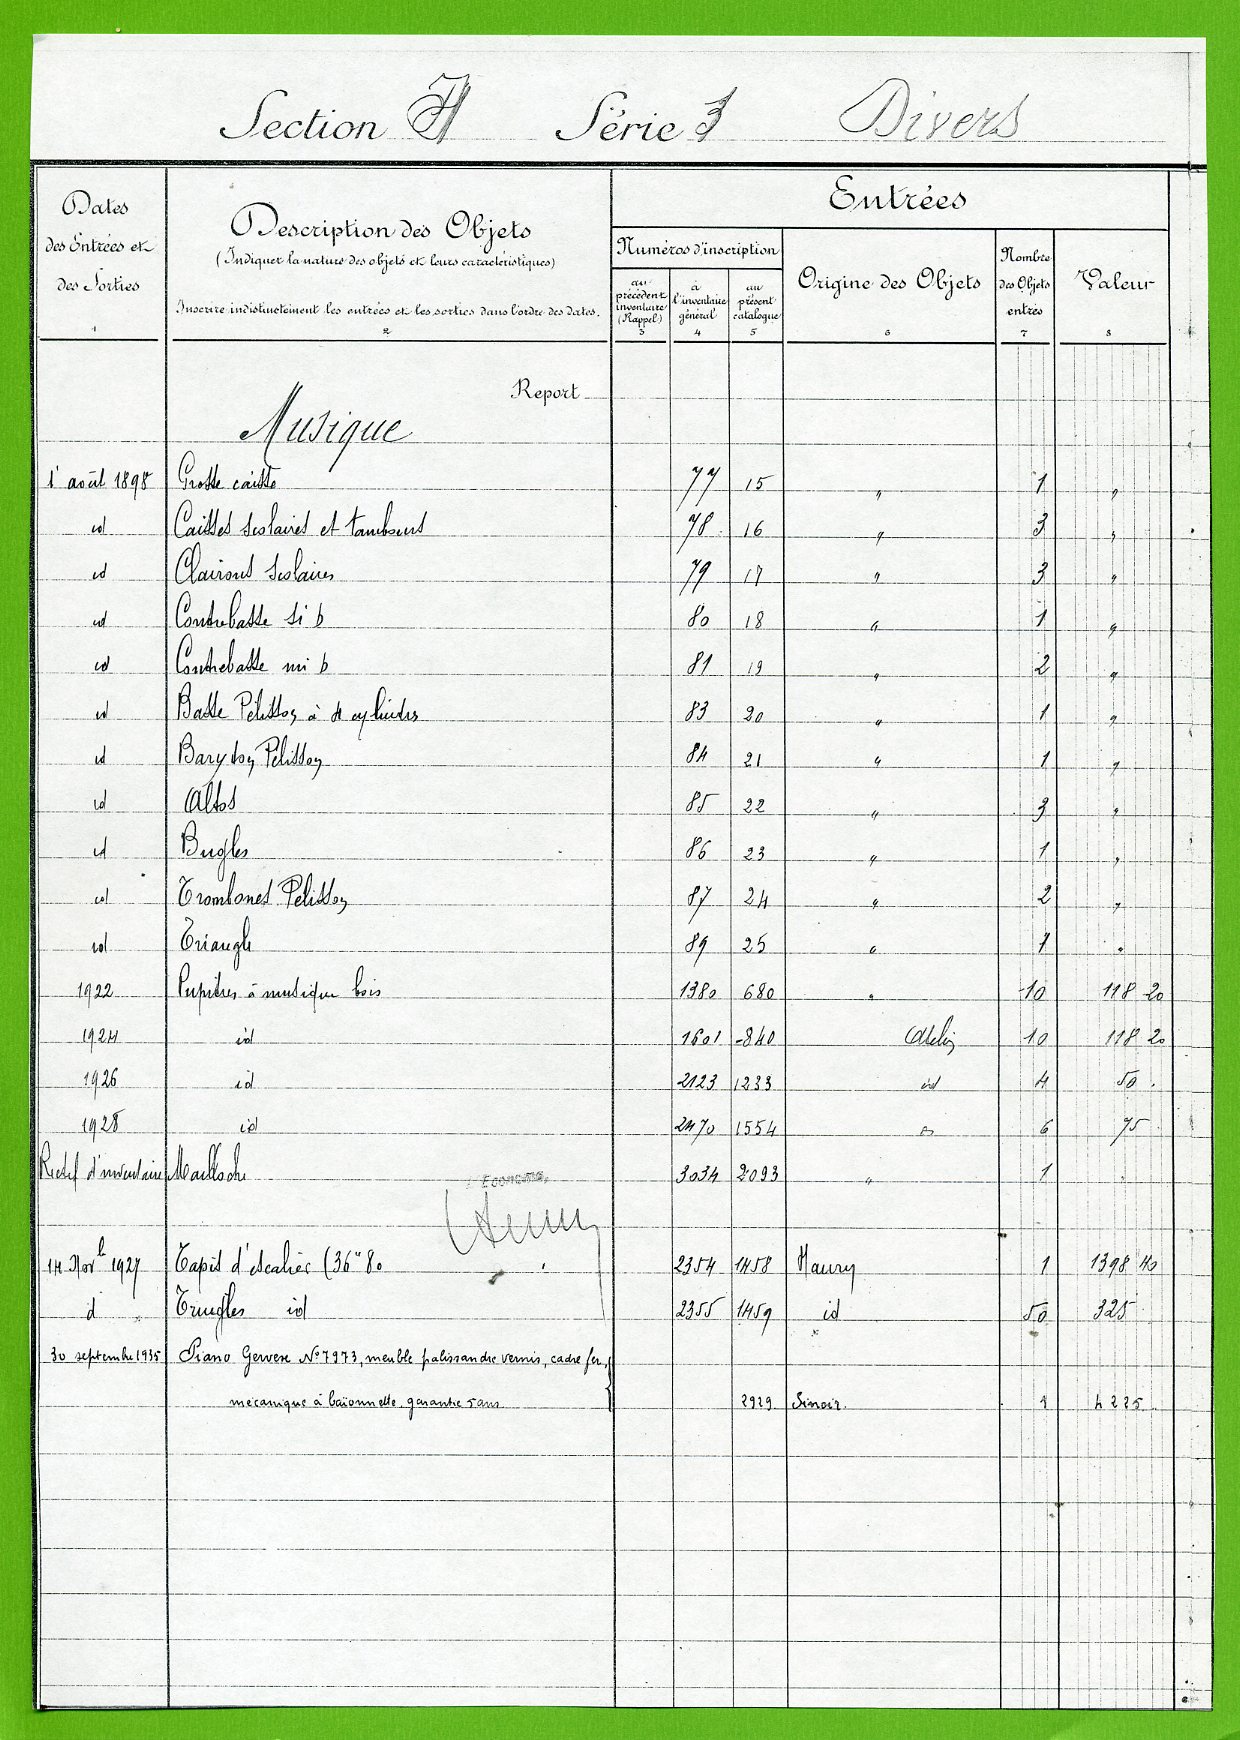 Section H Série 3 Divers
Dates des Entrées et des Sorties
1
Description des Objets
(Indiquer la nature des objets et leurs caractéristiques)
Inscrire indistinctement les entrées et les sorties dans l'ordre des dates.
2
Entrées
Numéros d'inscription
au précédent inventaire (Rappel)
3
à l'inventaire général
4
au présent catalogue
5
Origine des Objets
6
Nombre des Objets entrés
7
Valeur
8
Report
Musique
1er août 1898 Grosse caisse 77 15 " 1 "
id Caisses scolaires et tambours 78 16 " 3 "
id Clairons scolaires 79 17 " 3 "
id Contrebasse si b 80 18 " 1 "
id Contrebasse mi b 81 19 " 2 "
id Basse Pélisson à 4 cylindres 83 20 " 1 "
id Baryton Pélisson 84 21 " 1 "
id Altos 85 22 " 3 "
id Bugles 86 23 " 1 "
id Trombones Pélisson 87 24 " 2 "
id Triangle 89 25 " 1 "
1922 Pupitres à musique bois 1380 680 " 10 118 20
1924 id 1601 840 Atelier 10 118 20
1926 id 2123 1233 id 4 50
1928 id 2470 1554 6 75
d'inventaire Mailloche 3034 2093 " 1
L'Econome,
14 Nov 1927 Tapis d'escalier (36m80 2354 1458 Maury 1 1398 40
d Tringles id 2355 1459 id 50 325
30 septembre 1935 Piano Gervex N° 7973, meuble palissandre vernis, cadre fer,
mécanique à baïonnette, garantie 5 ans 2929 Sinoir. 1 4225